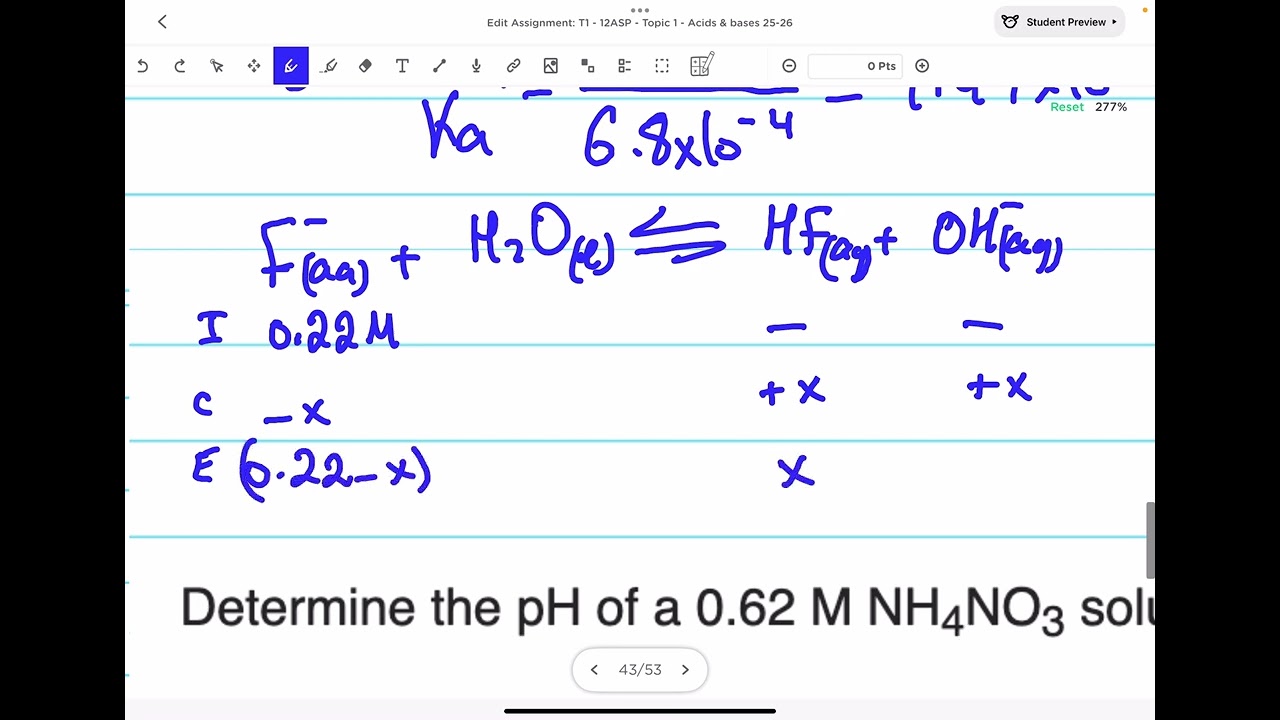 Edit Assignment: T1 - 12ASP - Topic 1 - Acids & bases 25-26
Student Preview
0 Pts
Reset 277%
Ka = 6.8x10⁻⁴ =
F⁻(aq) + H₂O(l) ⇌ HF(aq) + OH⁻(aq)
I 0.22M − −
C −x +x +x
E (0.22−x) x
Determine the pH of a 0.62 M NH₄NO₃
43/53